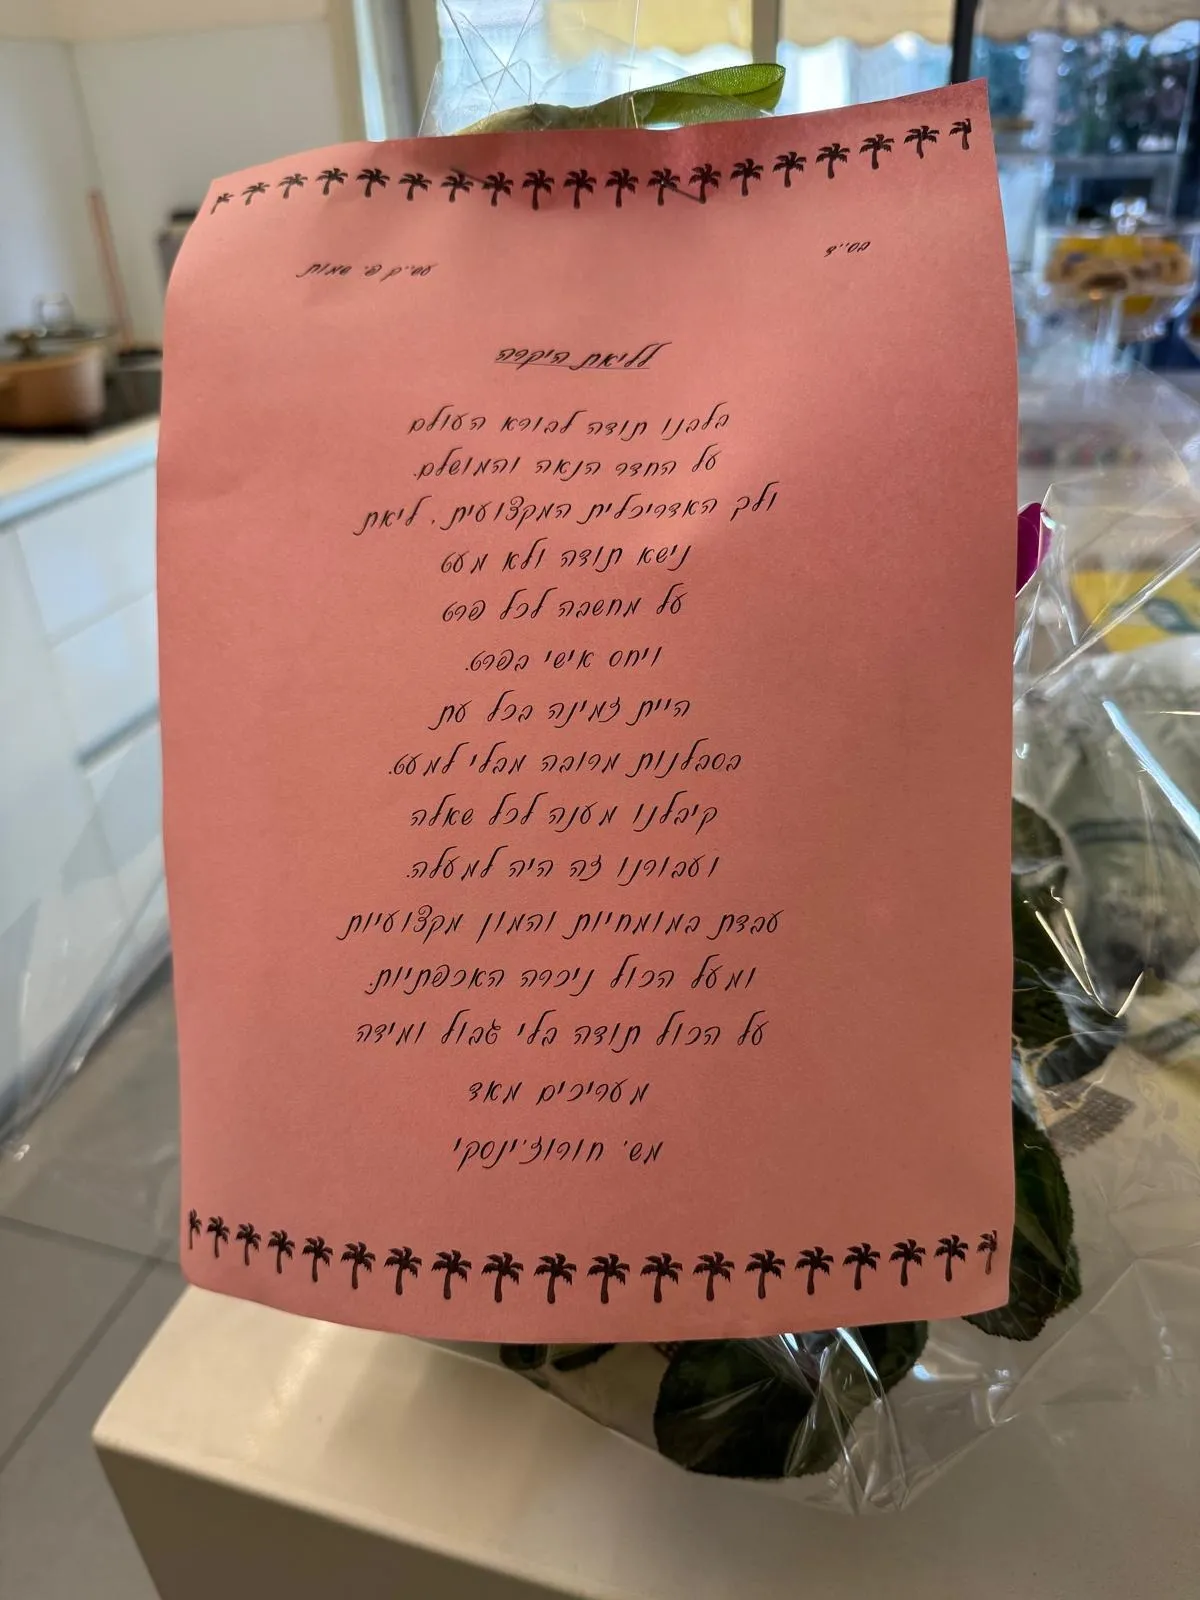 בס''ד
עש''ק פ' שמות
לליאת היקרה
בלבנו תודה לבורא העולם
על החדר הנאה והמושלם.
ולך האדריכלית המקצועית, ליאת
נישא תודה ולא מעט
על מחשבה לכל פרט
ויחס אישי בפרט.
היית זמינה בכל עת
בסבלנות מרובה מבלי למעט.
קיבלנו מענה לכל שאלה
ועבורנו זה היה למעלה.
עבדת במומחיות והמון מקצועיות
ומעל הכול ניכרה האכפתיות.
על הכול תודה בלי גבול ומידה
מעריכים מאד
מש' חורוז'ינסקי